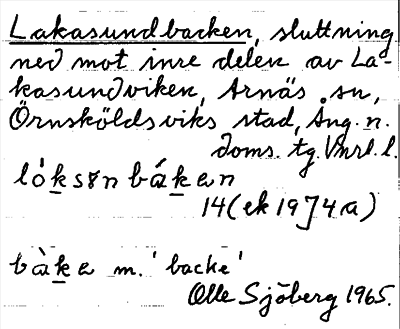 Lakasundbacken, sluttning
ned mot inre delen av La-
kasundviken, Arnäs sn,
Örnsköldsviks stad, Ång. n.
doms. tg. Vnrl. l.
lòksønbákan
14 (ek 19J4a)
bàka m. 'backe'
Olle Sjöberg 1965.